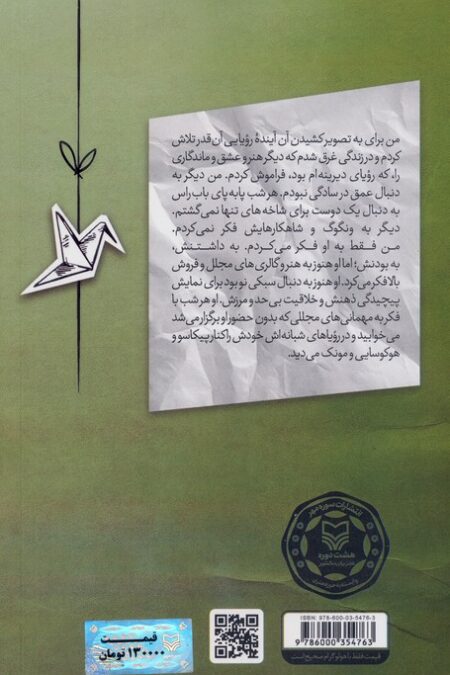 من برای به تصویر کشیدن آن آیندهٔ رؤیایی آن قدر تلاش
کردم و در زندگی غرق شدم که دیگر هنر و عشق و ماندگاری
را، که رؤیای دیرینه‌ام بود، فراموش کردم. من دیگر به
دنبال عمق در سادگی نبودم. هر شب پابه‌پای باب راس
به دنبال یک دوست برای شاخه‌های تنها نمی‌گشتم.
دیگر به ونگوگ و شاهکارهایش فکر نمی‌کردم.
من فقط به او فکر می‌کردم. به داشتنش،
به بودنش؛ اما او هنوز به هنر و گالری‌های مجلل و فروش
بالا فکر می‌کرد. او هنوز به دنبال سبکی نو بود برای نمایش
پیچیدگی ذهنش و خلاقیت بی‌حد و مرزش. او هر شب با
فکر به مهمانی‌های مجللی که بدون حضور او برگزار می‌شد
می‌خوابید و در رؤیاهای شبانه‌اش خودش را کنار پیکاسو و
هوکوسایی و مونک می‌دید.
انتشارات سوره مهر
هشت دوره
ISBN: 978-600-03-5476-3
9786000354763
قیمت فقط با هولوگرام صحیح است
قیمت
۱۳۰۰۰۰ تومان